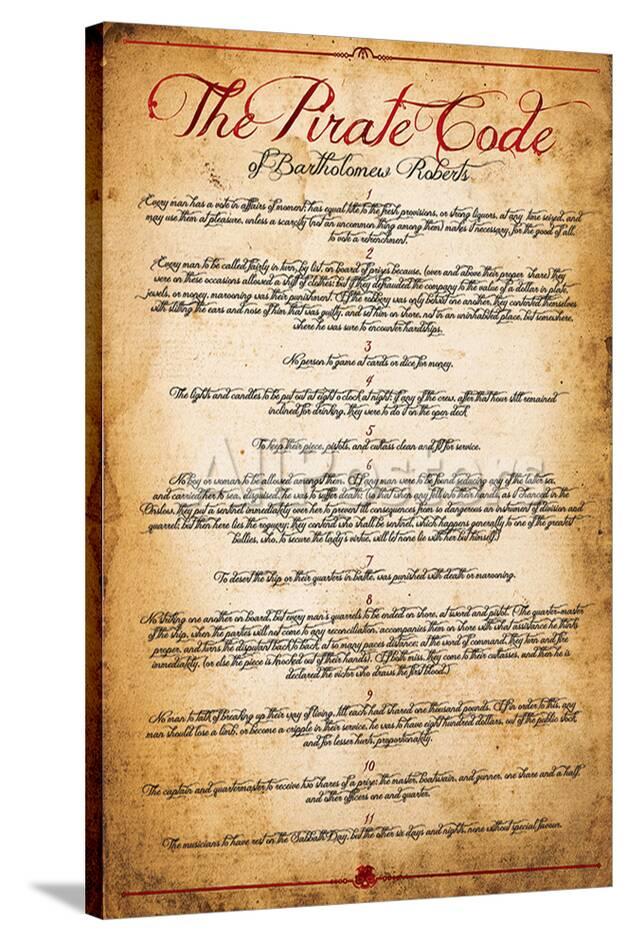 The Pirate Code
of Bartholomew Roberts
1
Every man has a vote in affairs of moment; has equal title to the fresh provisions, or strong liquors, at any time seized, and
may use them at pleasure, unless a scarcity (not an uncommon thing among them) makes it necessary, for the good of all,
to vote a retrenchment.
2
Every man to be called fairly in turn, by list, on board of prizes because, (over and above their proper share) they
were on these occasions allowed a shift of clothes: but if they defrauded the company to the value of a dollar in plate,
jewels, or money, marooning was their punishment. If the robbery was only betwixt one another, they contented themselves
with slitting the ears and nose of him that was guilty, and set him on shore, not in an uninhabited place, but somewhere,
where he was sure to encounter hardships.
3
No person to game at cards or dice for money.
4
The lights and candles to be put out at eight o'clock at night: if any of the crew, after that hour still remained
inclined for drinking, they were to do it on the open deck
5
To keep their piece, pistols, and cutlass clean and fit for service.
AllPosters
6
No boy or woman to be allowed amongst them. If any man were to be found seducing any of the latter sex,
and carried her to sea, disguised, he was to suffer death; (so that when any fell into their hands, as it chanced in the
Onslow, they put a sentinel immediately over her to prevent ill consequences from so dangerous an instrument of division and
quarrel; but then here lies the roguery; they contend who shall be sentinel, which happens generally to one of the greatest
bullies, who, to secure the lady's virtue, will let none lie with her but himself.)
7
To desert the ship or their quarters in battle, was punished with death or marooning.
8
No striking one another on board, but every man's quarrels to be ended on shore, at sword and pistol. (The quarter-master
of the ship, when the parties will not come to any reconciliation, accompanies them on shore with what assistance he thinks
proper, and turns the disputant back to back, at so many paces distance; at the word of command, they turn and fire
immediately, (or else the piece is knocked out of their hands). If both miss, they come to their cutlasses, and then he is
declared the victor who draws the first blood.)
9
No man to talk of breaking up their way of living, till each had shared one thousand pounds. If in order to this, any
man should lose a limb, or become a cripple in their service, he was to have eight hundred dollars, out of the public stock,
and for lesser hurts, proportionately.
10
The captain and quartermaster to receive two shares of a prize: the master, boatswain, and gunner, one share and a half,
and other officers one and quarter.
11
The musicians to have rest on the Sabbath Day, but the other six days and nights, none without special favour.